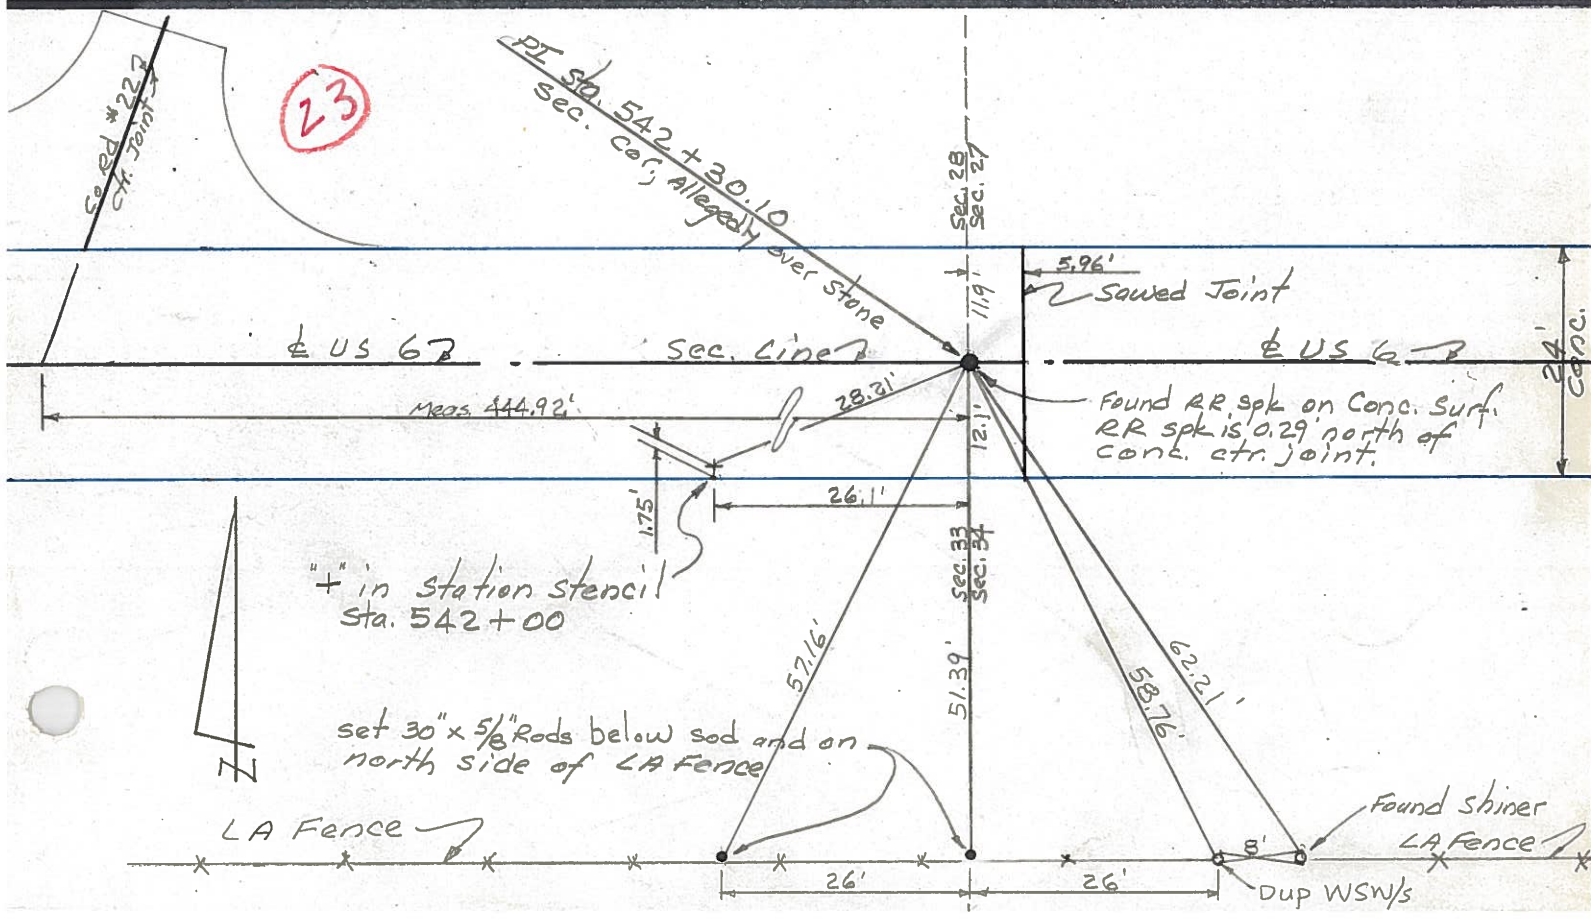 Co Rd #22
Ctr. Joint
23
PI Sta. 542 + 30.10
Sec. Cor, Allegedly over Stone
Sec. 28
Sec. 27
11.9'
5.96'
Sawed Joint
24'
Conc.
℄ US 6
Sec. Line
℄ US 6
Meas. 444.92'
28.21'
12.1'
Found RR spk on Conc. Surf.
RR spk is 0.29' north of
Conc. ctr. joint.
1.75'
26.1'
Sec. 33
Sec. 34
"+" in Station Stencil
Sta. 542 + 00
57.16'
51.39'
58.76'
62.21'
N
set 30" x 5/8" Rods below sod and on
north side of LA Fence
LA Fence
Found Shiner
LA Fence
8'
26'
26'
Dup WSW/s